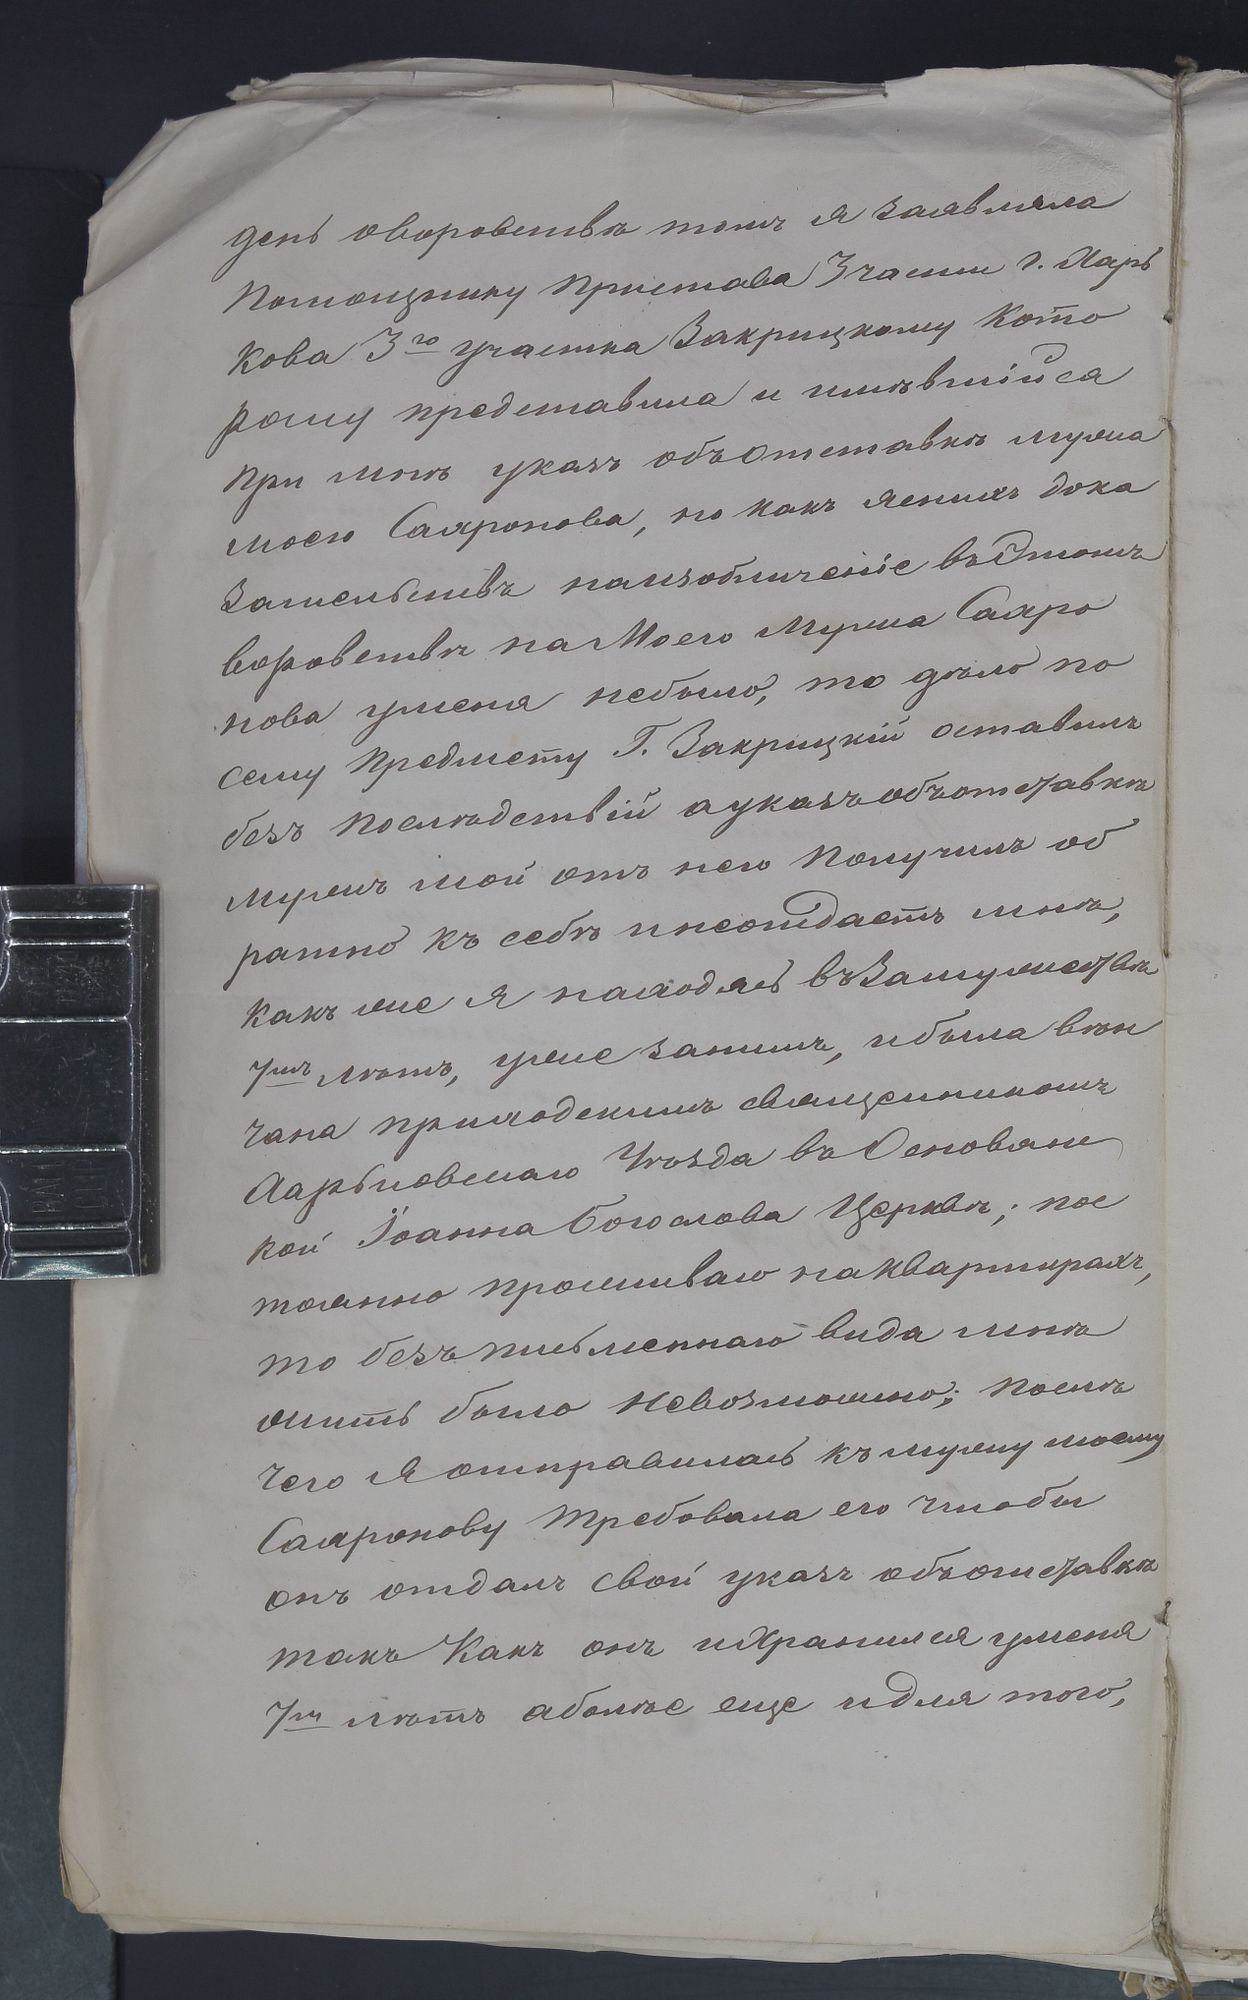 день оворовствѣ томъ я заявляла
Помощнику Пристава 3 части г. Харь
кова 3го участка Закрицкому Кото
рому представила и имѣвшійся
При мнѣ указъ объ Отставкѣ мужа
моего Сахронова, но какъ ясныхъ дока
зательствъ наизобличеніе въ Этомъ
воровствѣ на Моего Мужа Сахро
нова уменя небыло, то дѣло по
сему Предмету Г. Закрицкій оставилъ
безъ Послѣдствій а указъ объ отставкѣ
мужъ мой отъ него Получилъ об
ратно къ себѣ и неотдаетъ мнѣ,
Какъ же я находясь въ Замужествѣ
7мъ лѣтъ, уже занимъ, и была вѣн
чана приходскимъ священикомъ
Харьковскаго Уѣзда въ Основянс
кой Іоанна Богослова Церквѣ; пос
тоянно проживаю на Квартирахъ,
то безъ письменнаго вида мнѣ
жить было Невозможно; послѣ
чего я отправилась къ мужу моему
Сахронову Требовала его чтобы
онъ отдалъ свой указъ объ отставкѣ
такъ Какъ онъ и Хранился уменя
7мъ лѣтъ аболѣе еще и для того,